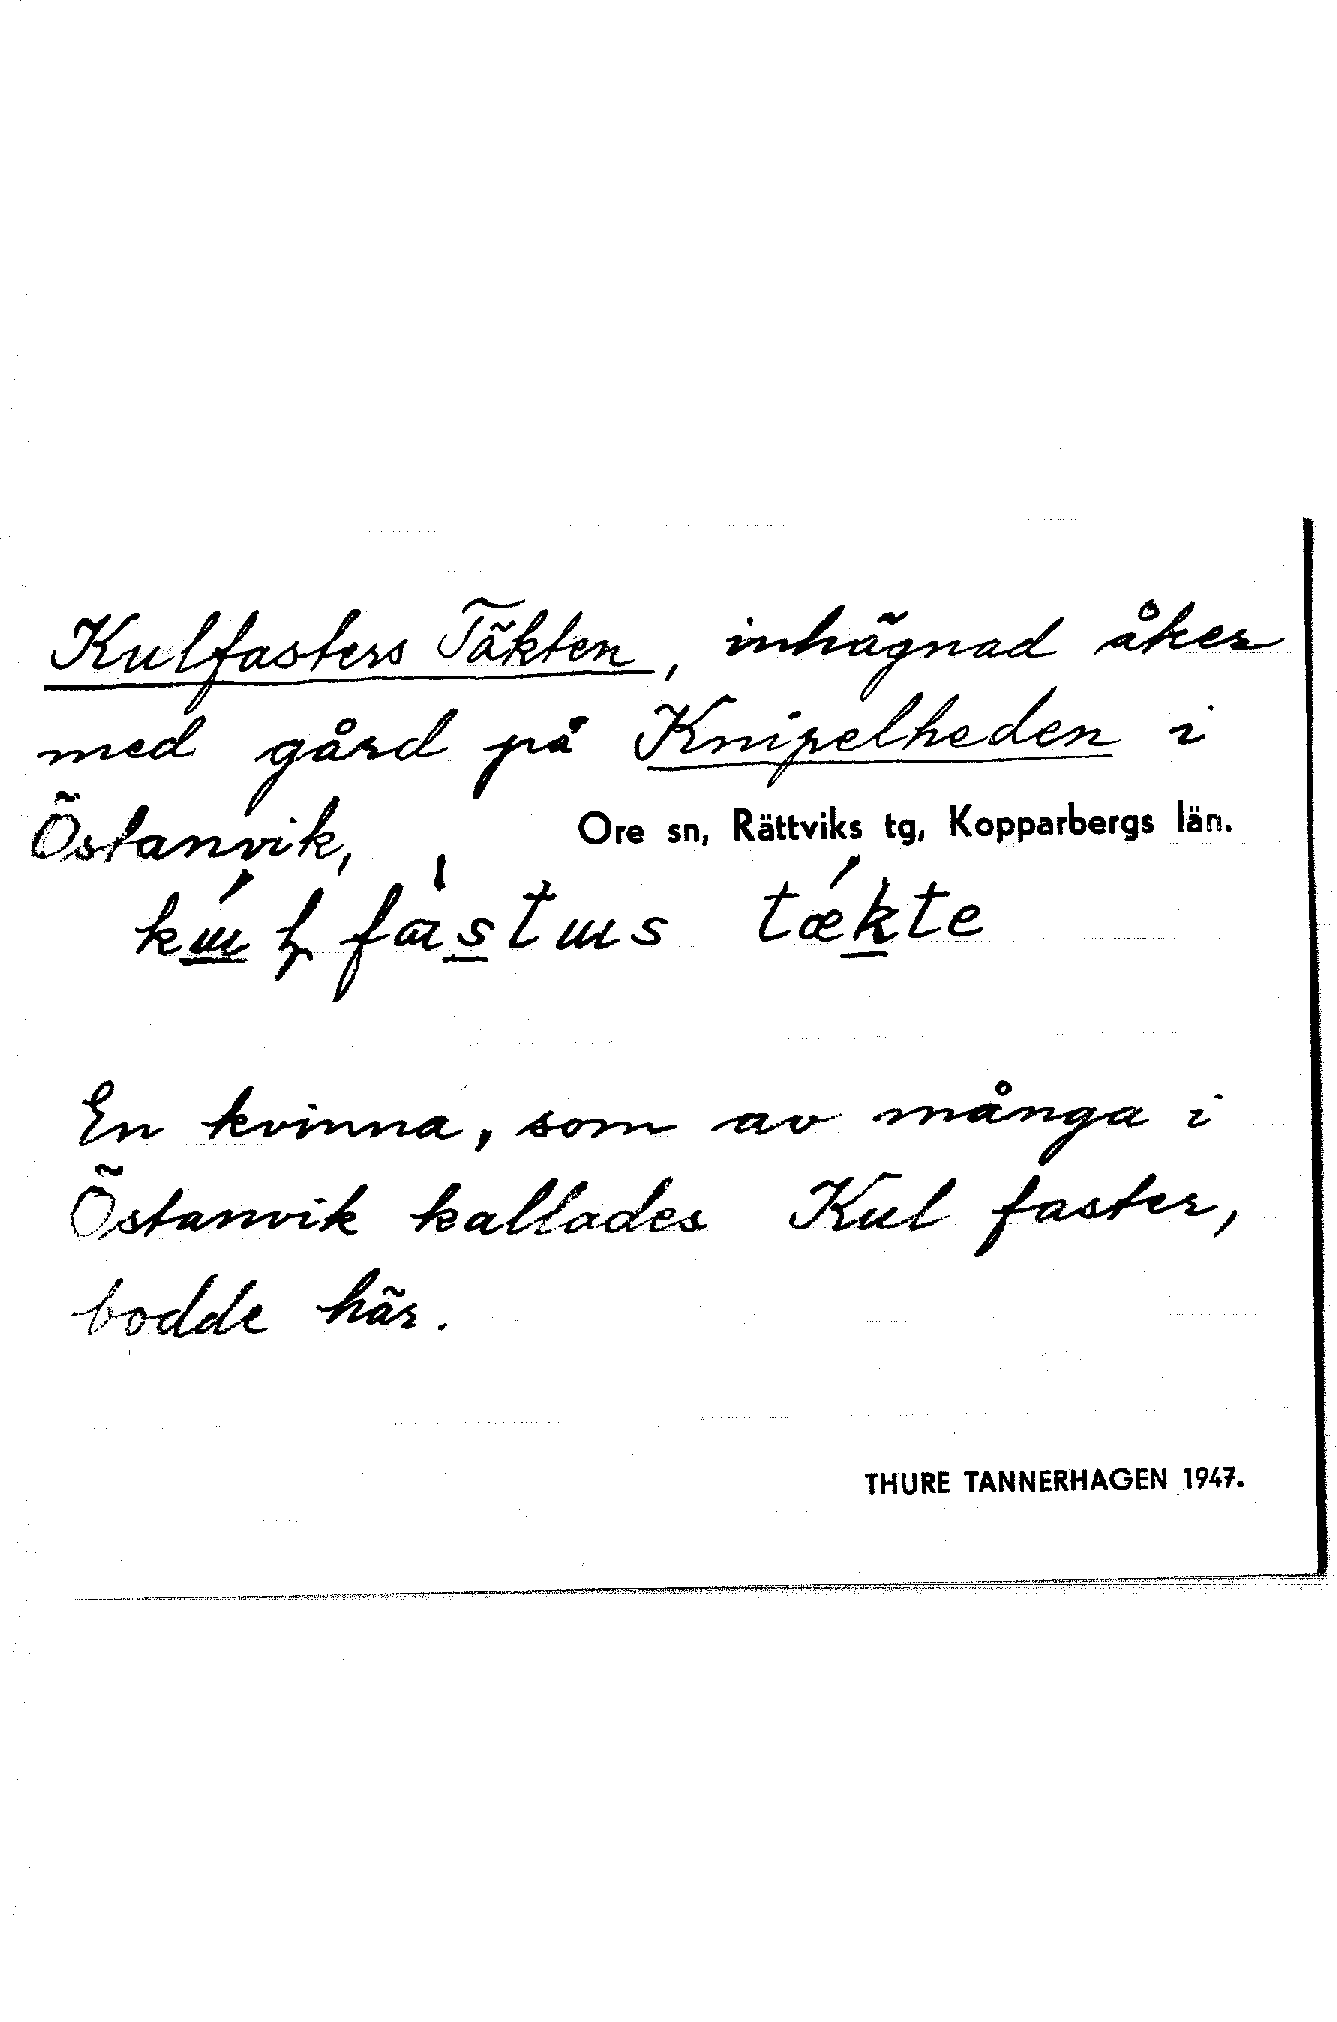 Kulfasters Täkten, inhägnad åker
med gård på Knipelheden i
Östanvik, Ore sn, Rättviks tg, Kopparbergs län.
En kvinna, som av många i
Östanvik kallades Kul faster,
bodde här.
THURE TANNERHAGEN 1947.